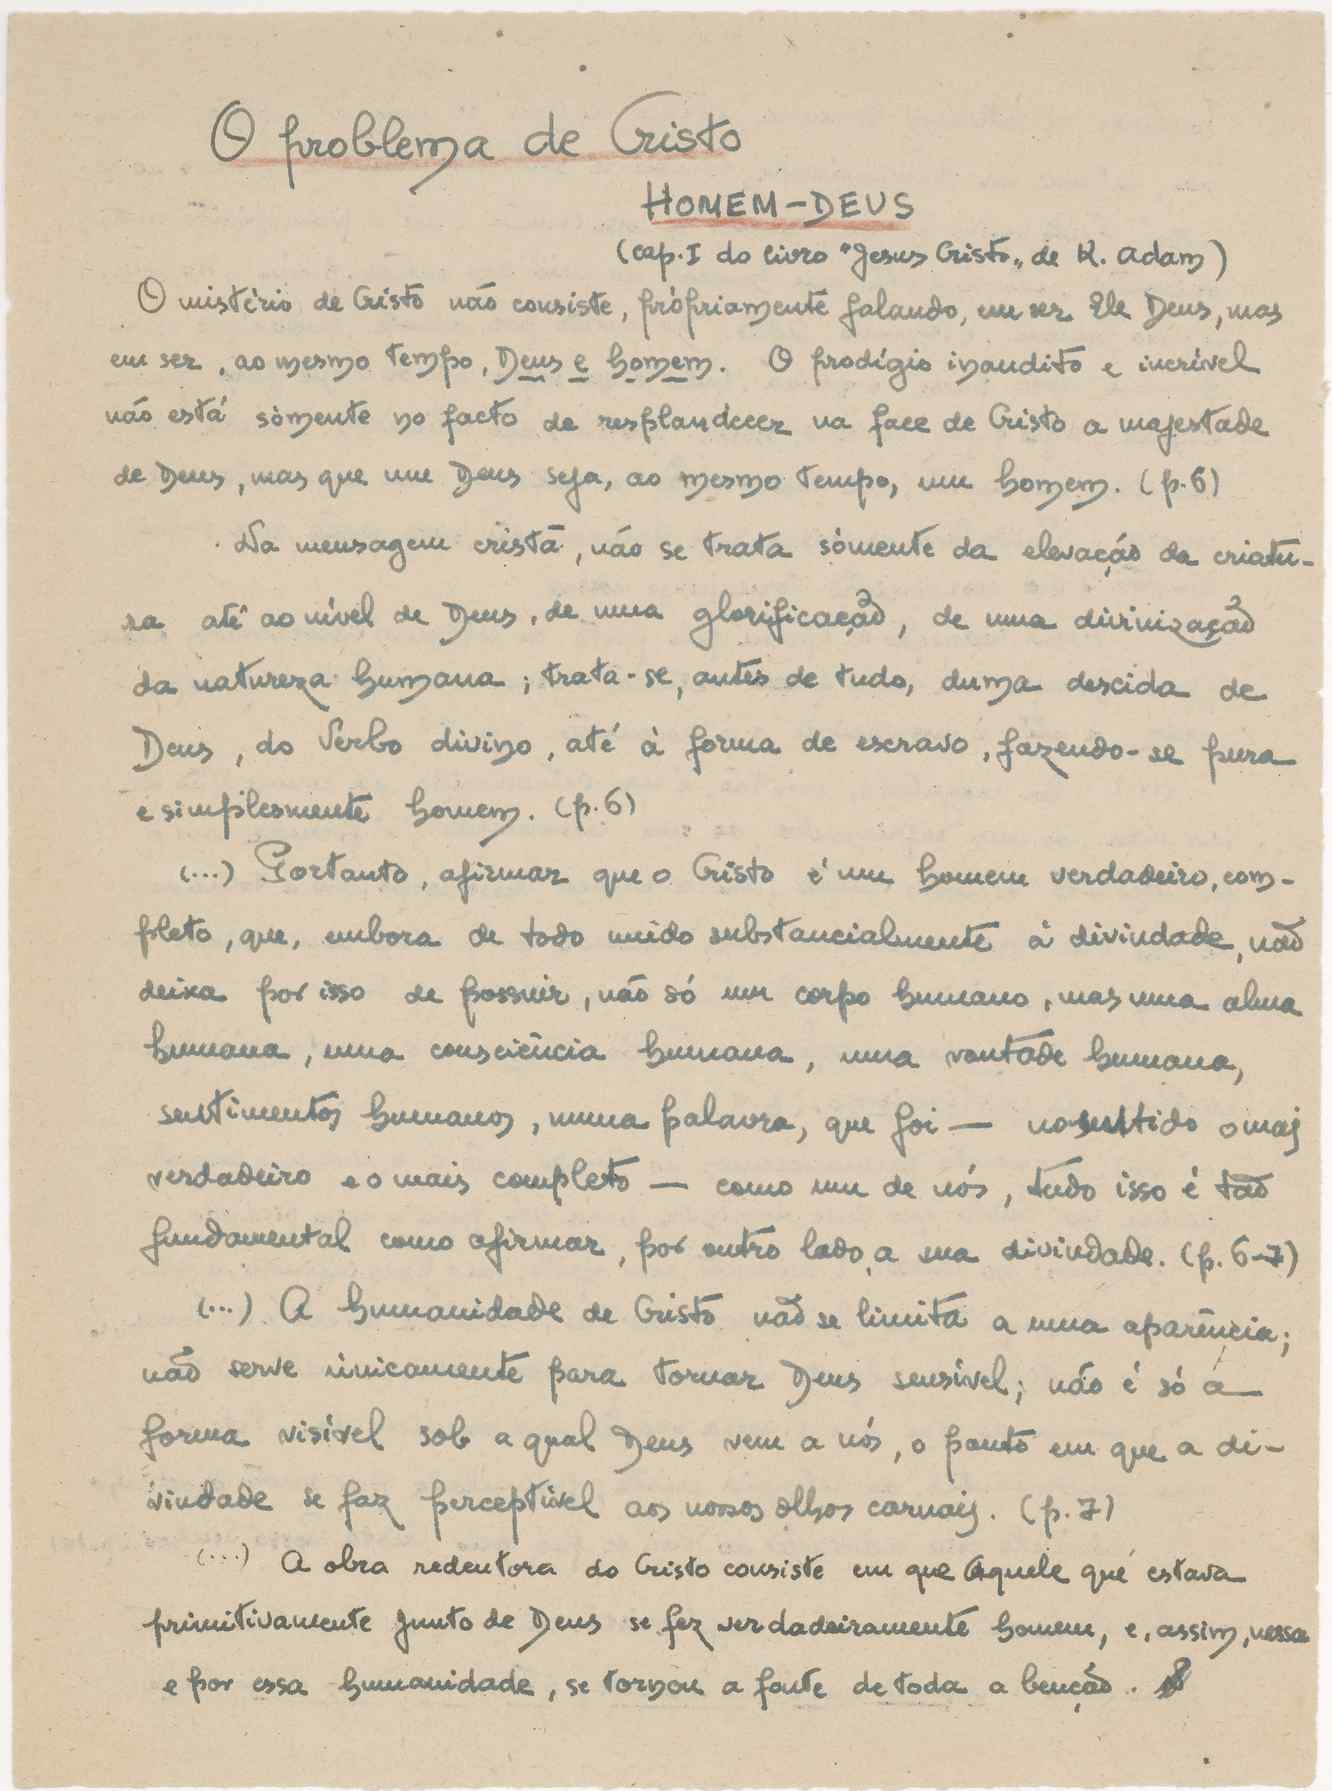 O problema de Cristo
HOMEM-DEUS
(cap. I do livro "Jesus Cristo„ de K. Adam)
O mistério de Cristo não consiste, pròpriamente falando, em ser Ele Deus, mas
em ser, ao mesmo tempo, Deus e homem. O prodígio inaudito e incrível
não está sòmente no facto de resplandecer na face de Cristo a majestade
de Deus, mas que um Deus seja, ao mesmo tempo, um homem. (p. 6)
Na mensagem cristã, não se trata sòmente da elevação da criatu-
ra até ao nível de Deus, de uma glorificação, de uma divinização
da natureza humana; trata-se, antes de tudo, duma descida de
Deus, do Verbo divino, até à forma de escravo, fazendo-se pura
e simplesmente homem. (p. 6)
(...) Portanto, afirmar que o Cristo é um homem verdadeiro, com-
pleto, que, embora de todo unido substancialmente à divindade, não
deixa por isso de possuir, não só um corpo humano, mas uma alma
humana, uma consciência humana, uma vontade humana,
sentimentos humanos, numa palavra, que foi — no sentido o mais
verdadeiro e o mais completo — como um de nós, tudo isso é tão
fundamental como afirmar, por outro lado, a sua divindade. (p. 6-7)
(...) A humanidade de Cristo não se limita a uma aparência;
não serve ùnicamente para tornar Deus sensível; não é só a
forma visível sob a qual Deus vem a nós, o ponto em que a di-
vindade se faz perceptível aos nossos olhos carnais. (p. 7)
(...) A obra redentora do Cristo consiste em que Aquele que estava
primitivamente junto de Deus se fez verdadeiramente homem, e, assim, nessa
e por essa humanidade, se tornou a fonte de toda a benção.